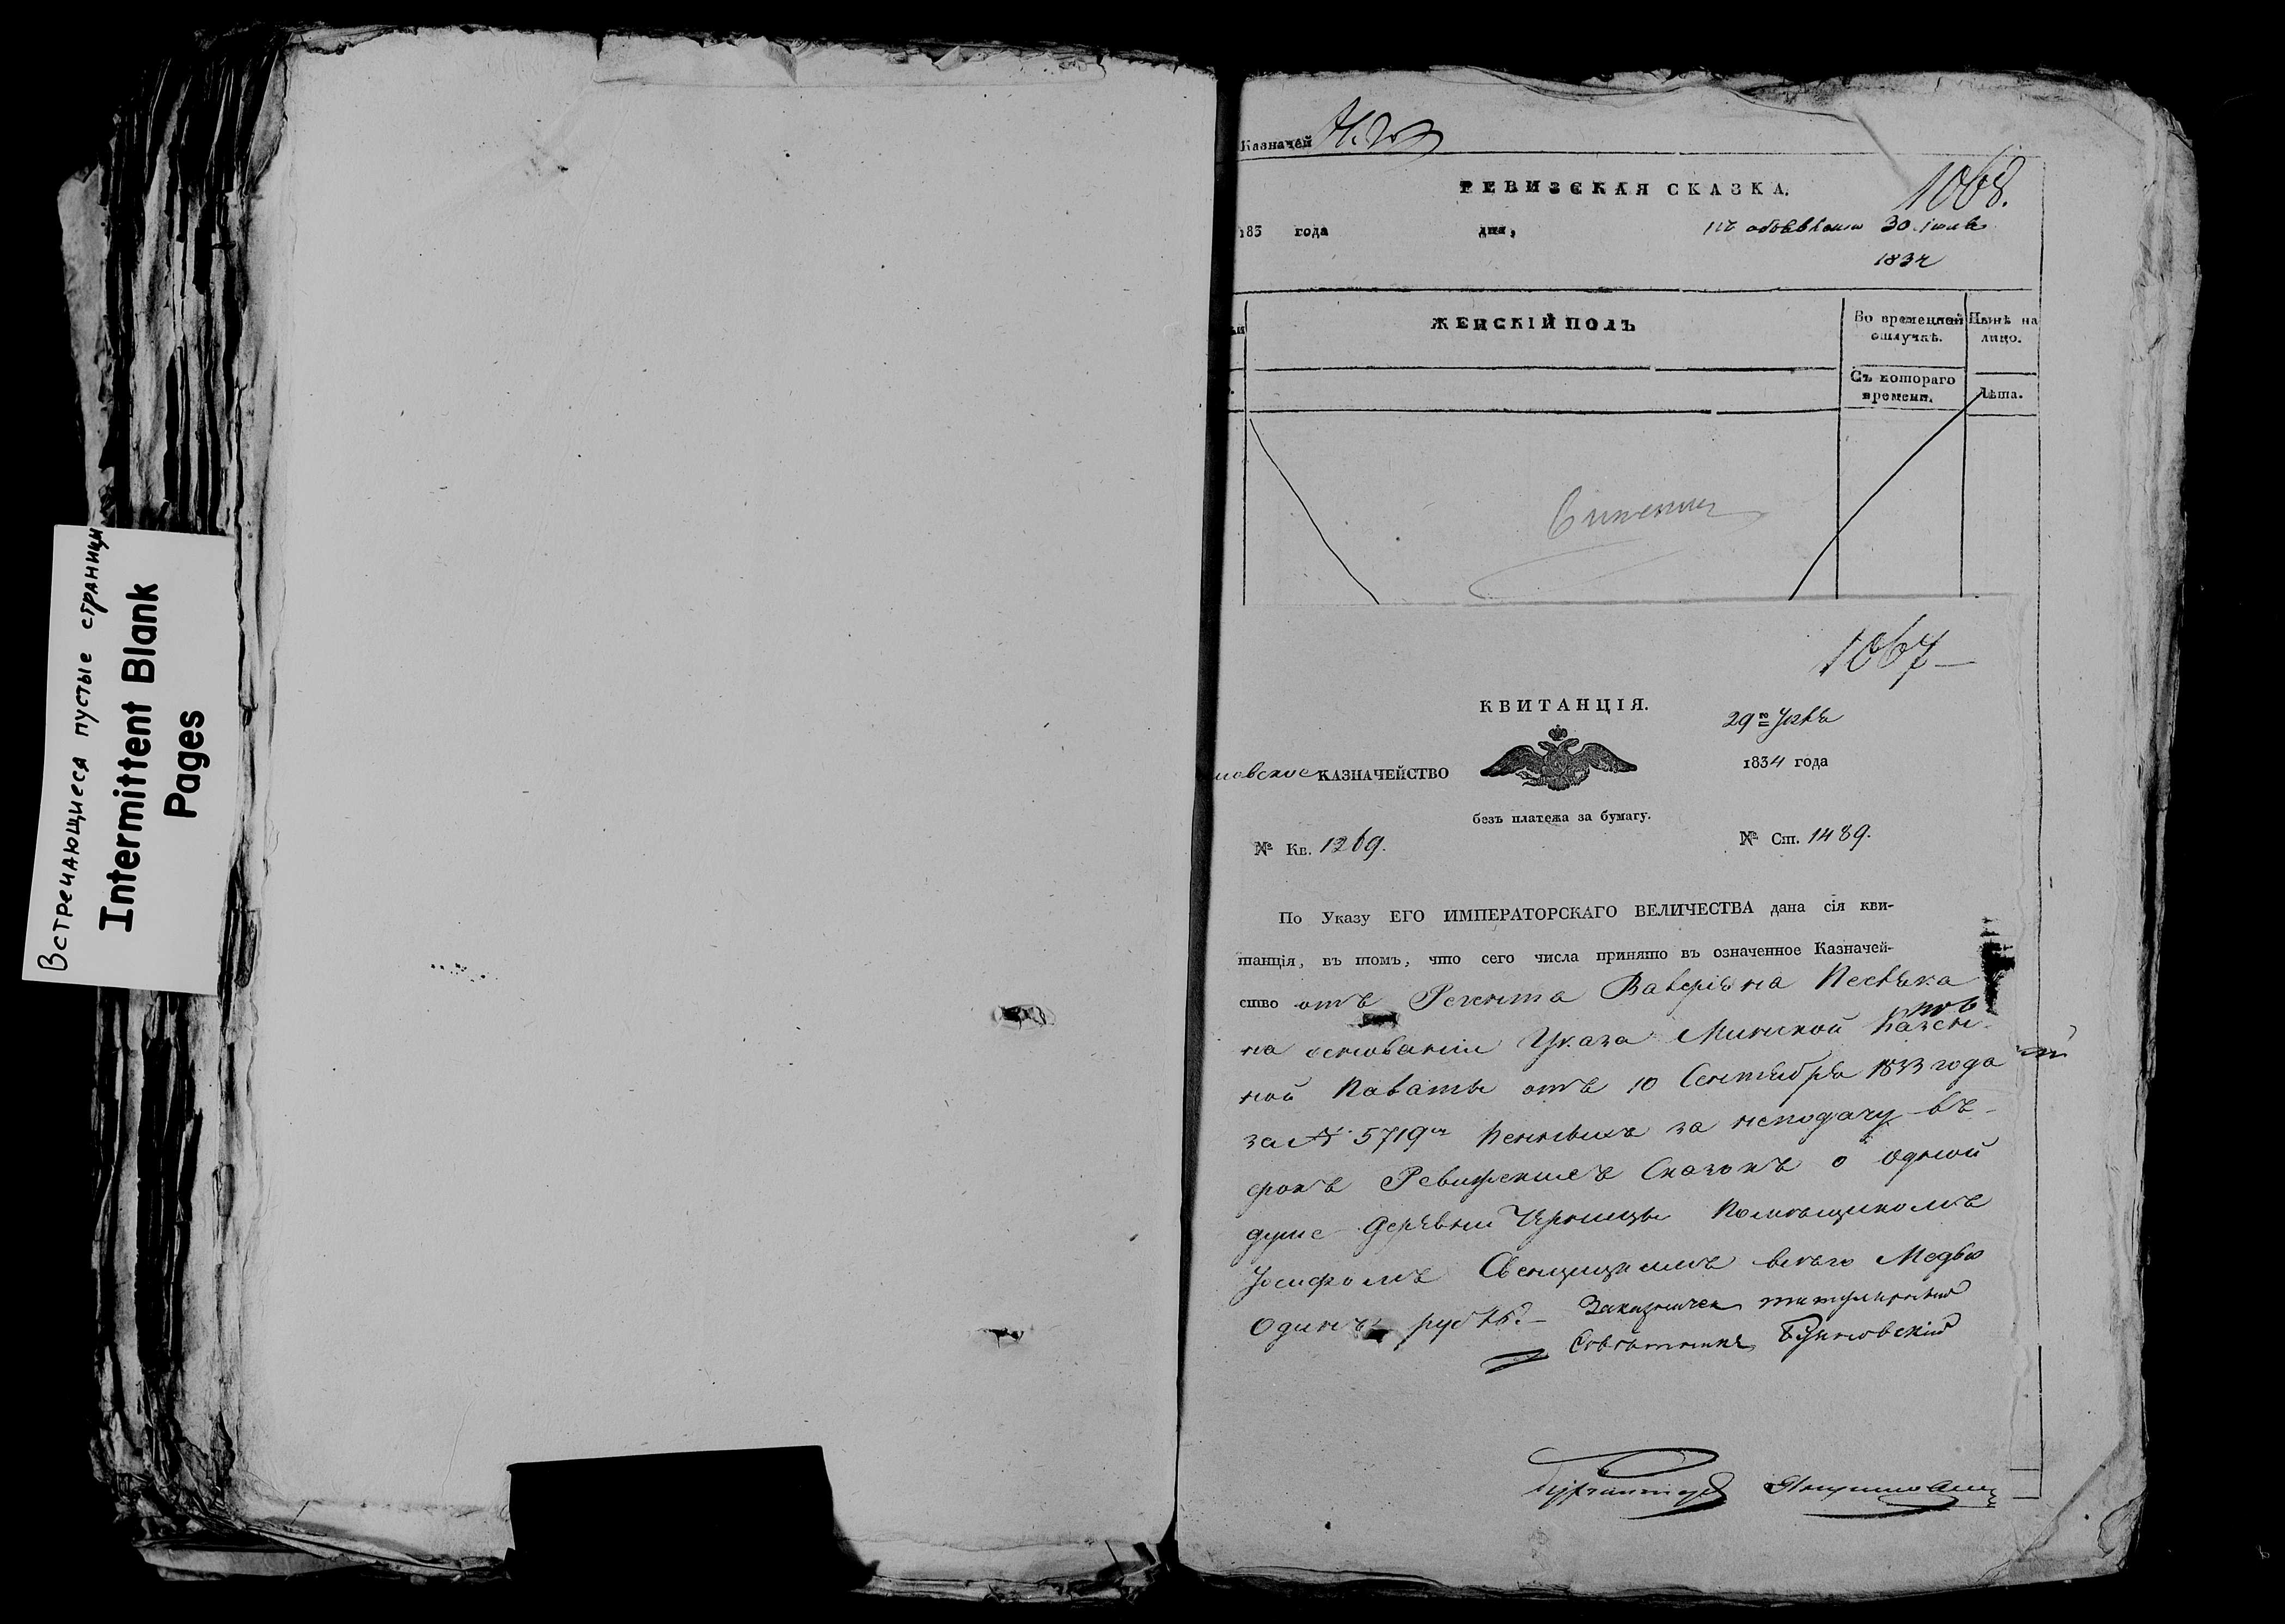 Встречающиеся пустые страницы
Intermittent Blank
Pages
Казначей
1068.
РЕВИЗСКАЯ СКАЗКА.
183 года дня,
30 Іюля
1834
ЖЕНСКІЙ ПОЛЪ
Во временной отлучкѣ.
Нынѣ на лицо.
Съ котораго времени.
Лѣта.
1067
КВИТАНЦІЯ.
29го Іюля
новское КАЗНАЧЕЙСТВО
1834 года
безъ платежа за бумагу.
№ Кв. 1269.
№ Ст. 1489.
По Указу ЕГО ИМПЕРАТОРСКАГО ВЕЛИЧЕСТВА дана сія кви-
танція, въ томъ, что сего числа принято въ означенное Казначей-
ство отъ Регента Валеріяна
на основаніи Указа Минской Казен-
ной Палаты отъ 10 Сентября 1833 года
за № 5719м за неподачу въ
срокъ Ревижскихъ Сказокъ о одной
душе деревни Черницы Помѣщикомъ
Іосифомъ Свенцицкимъ всего Медью
Одинъ рубль
титулярный
Совѣтникъ
Бухгалтеръ